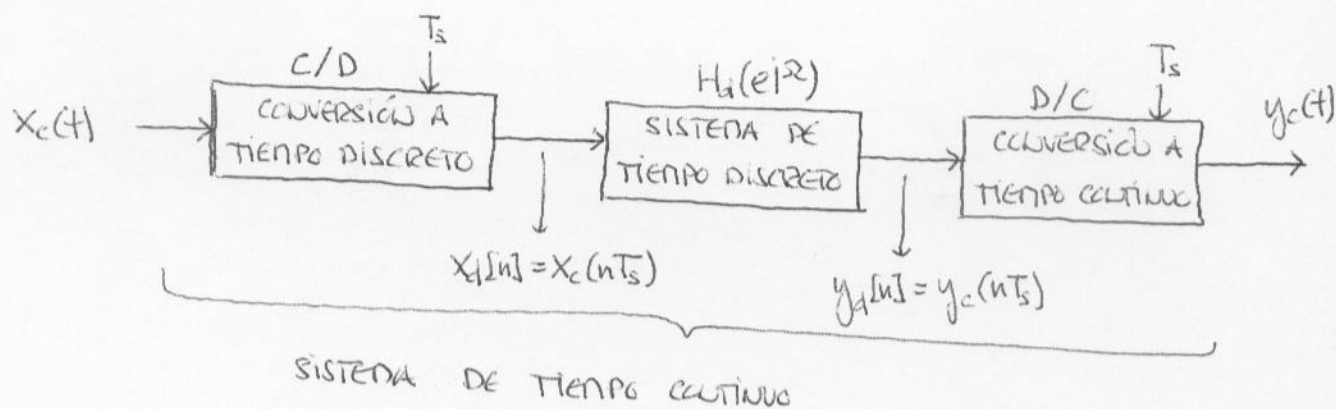 T_s
C/D
H_d(e^{jΩ})
T_s
D/C
x_c(t)
CONVERSIÓN A
TIEMPO DISCRETO
SISTEMA DE
TIEMPO DISCRETO
CONVERSIÓ A
TIEMPO CONTÍNUO
y_c(t)
x_d[n] = x_c(nT_s)
y_d[n] = y_c(nT_s)
SISTEMA DE TIEMPO CONTÍNUO